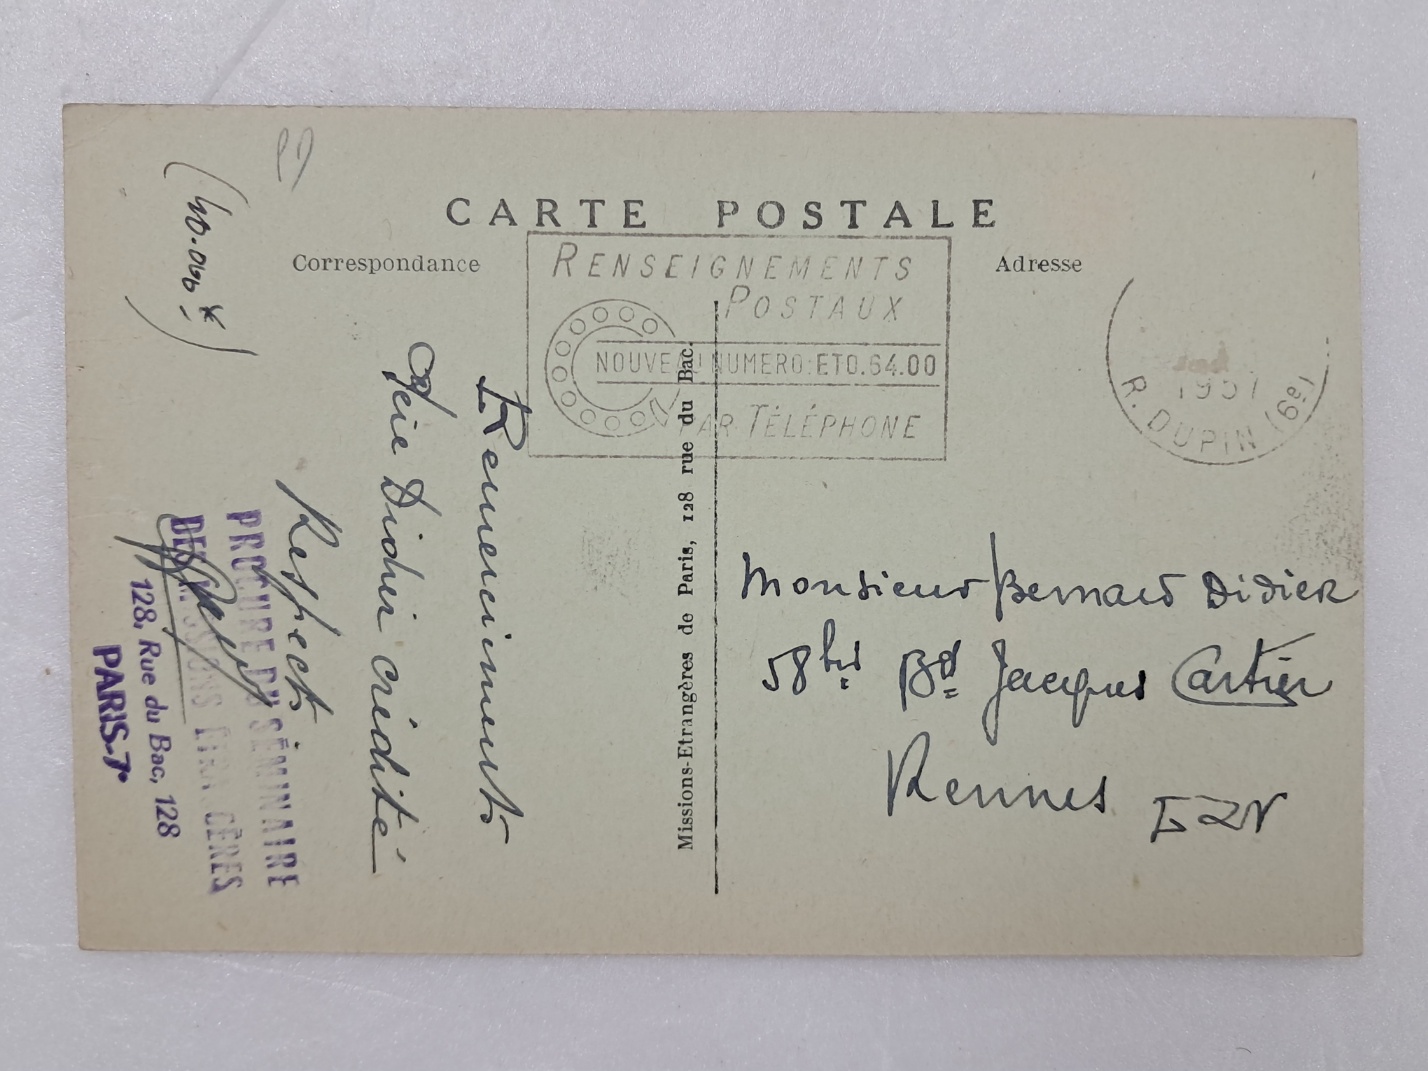 CARTE POSTALE
Correspondance
Adresse
RENSEIGNEMENTS
POSTAUX
NOUVEAU NUMERO: ETO.64.00
PAR TÉLÉPHONE
1957
R. DUPIN (6e)
Missions-Etrangères de Paris, 128 rue du Bac.
Remerciements
Didier crédité
Respect
(40.000
PROCURE DU SÉMINAIRE
DES MISSIONS ETRANGÈRES
128, Rue du Bac, 128
PARIS-7e
Monsieur Bernard Didier
58 bis Bd Jacques Cartier
Rennes